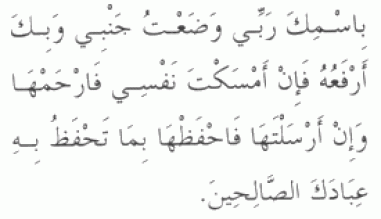 بِاسْمِكَ رَبِّي وَضَعْتُ جَنْبِي وَبِكَ
أَرْفَعُهُ فَإِنْ أَمْسَكْتَ نَفْسِي فَارْحَمْهَا
وَإِنْ أَرْسَلْتَهَا فَاحْفَظْهَا بِمَا تَحْفَظُ بِهِ
عِبَادَكَ الصَّالِحِينَ.